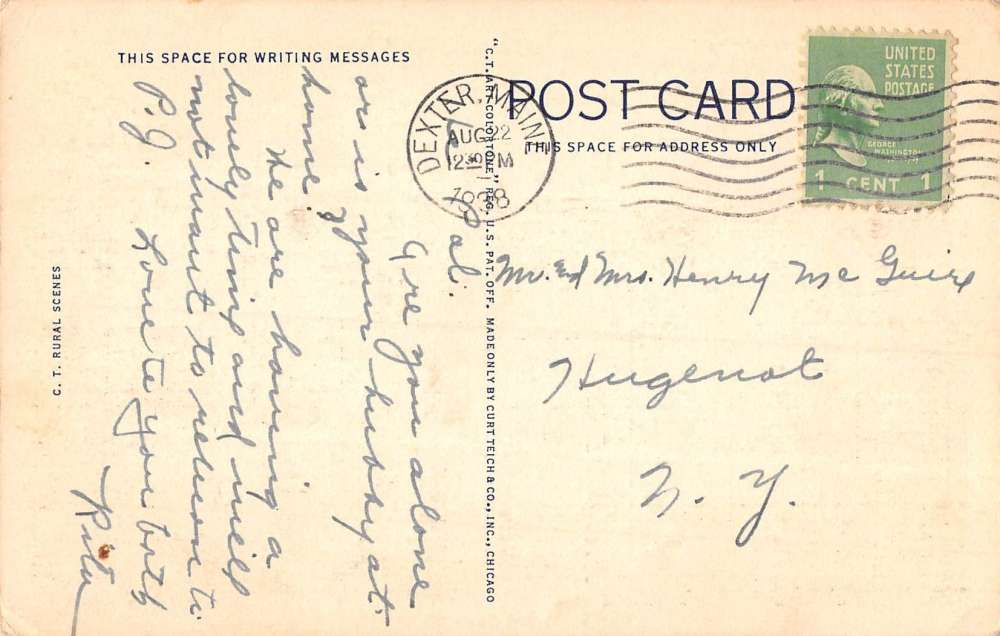 THIS SPACE FOR WRITING MESSAGES
Pal.
Are you alone
or is your hubby at
home?
We are having a
lovely time and will
not want to return to
P. J. Love to you both
Rita
C. T. RURAL SCENES
"C.T. ART-COLORTONE" REG. U.S. PAT. OFF. MADE ONLY BY CURT TEICH & CO., INC., CHICAGO
POST CARD
THIS SPACE FOR ADDRESS ONLY
DEXTER, MAINE
AUG 22
12 PM
1938
UNITED
STATES
POSTAGE
GEORGE
WASHINGTON
1 CENT 1
Mr. ed Mrs. Henry Mc Guire
Hugenot
N. Y.